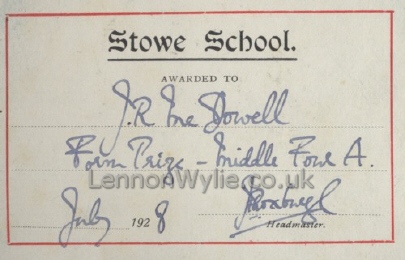 Stowe School.
AWARDED TO
J.R McDowell
Form Prize - Middle Four A.
LennonWylie.co.uk
July 1928 JRoxburgh
Headmaster.